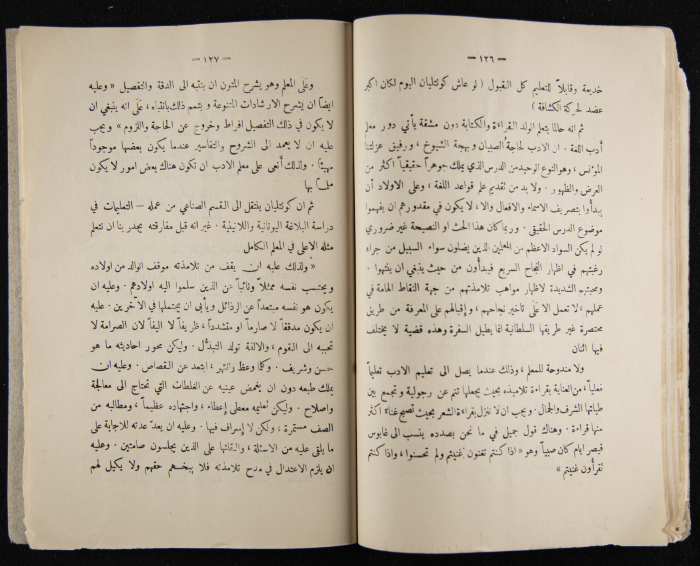 — ١٢٦ —
خديعة وقابلاً للتعليم كل القبول (لو عاش كونتليان اليوم لكان اكبر
عضد لحركة الكشافة)
ثم انه حالما يتعلم الولد القراءة والكتابة دون مشقة يأتي دور معلم
أدب اللغة. ان الادب لحاجة الصبيان وبهجة الشيوخ، ورفيق عزلتنا
المؤنس، وهو النوع الوحيد من الدرس الذي يملك جوهراً حقيقياً اكثر من
العرض والظهور. ولا بد من تقديم علم قواعد اللغة، وعلى الاولاد أن
يبدأوا بتصريف الاسماء والافعال والا، لا يكون في مقدورهم ان يفهموا
موضوع الدرس الحقيقي. وربما كان هذا الحث او النصيحة غير ضروري
لو لم يكن السواد الاعظم من المعلمين الذين يضلون سواء السبيل من جراء
رغبتهم في اظهار النجاح السريع فيبدأون من حيث يذبغي ان ينتهوا.
ومحبتهم الشديدة لاظهار مواهب تلامذتهم من جهة النقاط الهامة في
عملهم، لا تعمل الا على تأخير نجاحهم، واقبالهم على المعرفة من طريق
مختصرة غير طريقها السلطانية انما يطيل السفرة وهذه قضية لا يختلف
فيها اثنان
ولا مندوحة للمعلم، وذلك عندما يصل الى تعليم الادب تعليماً
فعلياً، من العناية بقراءة تلاميذه بحيث يجعلها تنم عن رجولية وتجمع بين
طياتها الشرف والجمال. ويجب ان لا تنزل بقراءة الشعر بحيث تصبح غناء اكثر
منها قراءة. وهناك قول جميل في ما نحن بصدده ينسب الى غايوس
قيصر ايام كان صبياً وهو « اذا كنتم تغنون غنيتم ولم تحسنوا، واذا كنتم
تقرأون غنيتم »
— ١٢٧ —
وعلى المعلم وهو يشرح المتون ان ينتبه الى الدقة والتفصيل « وعليه
ايضاً ان يشرح الارشادات المتنوعة ويتمم ذلك بانتباه، على انه ينبغي ان
لا يكون في ذلك التفصيل افراط وخروج عن الحاجة واللزوم » ويجب
عليه ان لا يعمد الى الشروح والتفاسير عندما يكون بعضها موجوداً
مهيئاً. ولذلك أنعى على معلم الادب ان تكون هناك بعض امور لا يكون
ملماً بها
ثم ان كونتليان ينتقل الى القسم الصناعي من عمله — التعليمات في
دراسة البلاغة اليونانية واللاتينية. غير انه قبل مفارقته يجدر بنا ان نتعلم
مثله الاعلى في المعلم الكامل
« ولذلك عليه ان يقف من تلامذته موقف الوالد من اولاده
ويحتسب نفسه ممثلاً ونائباً عن الذين سلموا اليه اولادهم. وعليه ان
يكون هو نفسه مبتعداً عن الرذائل ويأبى ان يحتملها في الآخرين. عليه
ان يكون مدققاً لا صارماً او متشدداً، ظريفاً لا اليفاً لان الصرامة لا
تحببه الى القوم، والالفة تولد التبذل. وليكن محور احاديثه ما هو
حسن وشريف. وكلما وعظ وانتهر، ابتعد عن القصاص. وعليه ان
يملك طبعه دون ان يغمض عينيه عن الغلطات التي تحتاج الى معالجة
واصلاح. وليكن تعليمه معطى إعطاء، واجتهاده عظيماً، ومطالبه من
الصف مستمرة، ولكن لا إسراف فيها. وعليه ان يعد عدته للاجابة على
ما يلقى عليه من الاسئلة، والقائها على الذين يجلسون صامتين. وعليه
ان يلزم الاعتدال في مدح تلامذته فلا يبخسهم حقهم ولا يكيل لهم